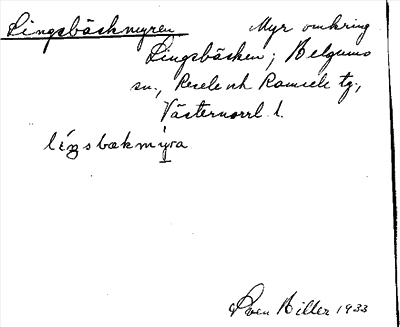 Lingsbäckmyren Myr omkring
Lingsbäcken; Helgums
sn., Resele och Ramsele tg,
Västernorrl. l.
lɩ́ŋsbækmỳra
Sven Hiller 1933